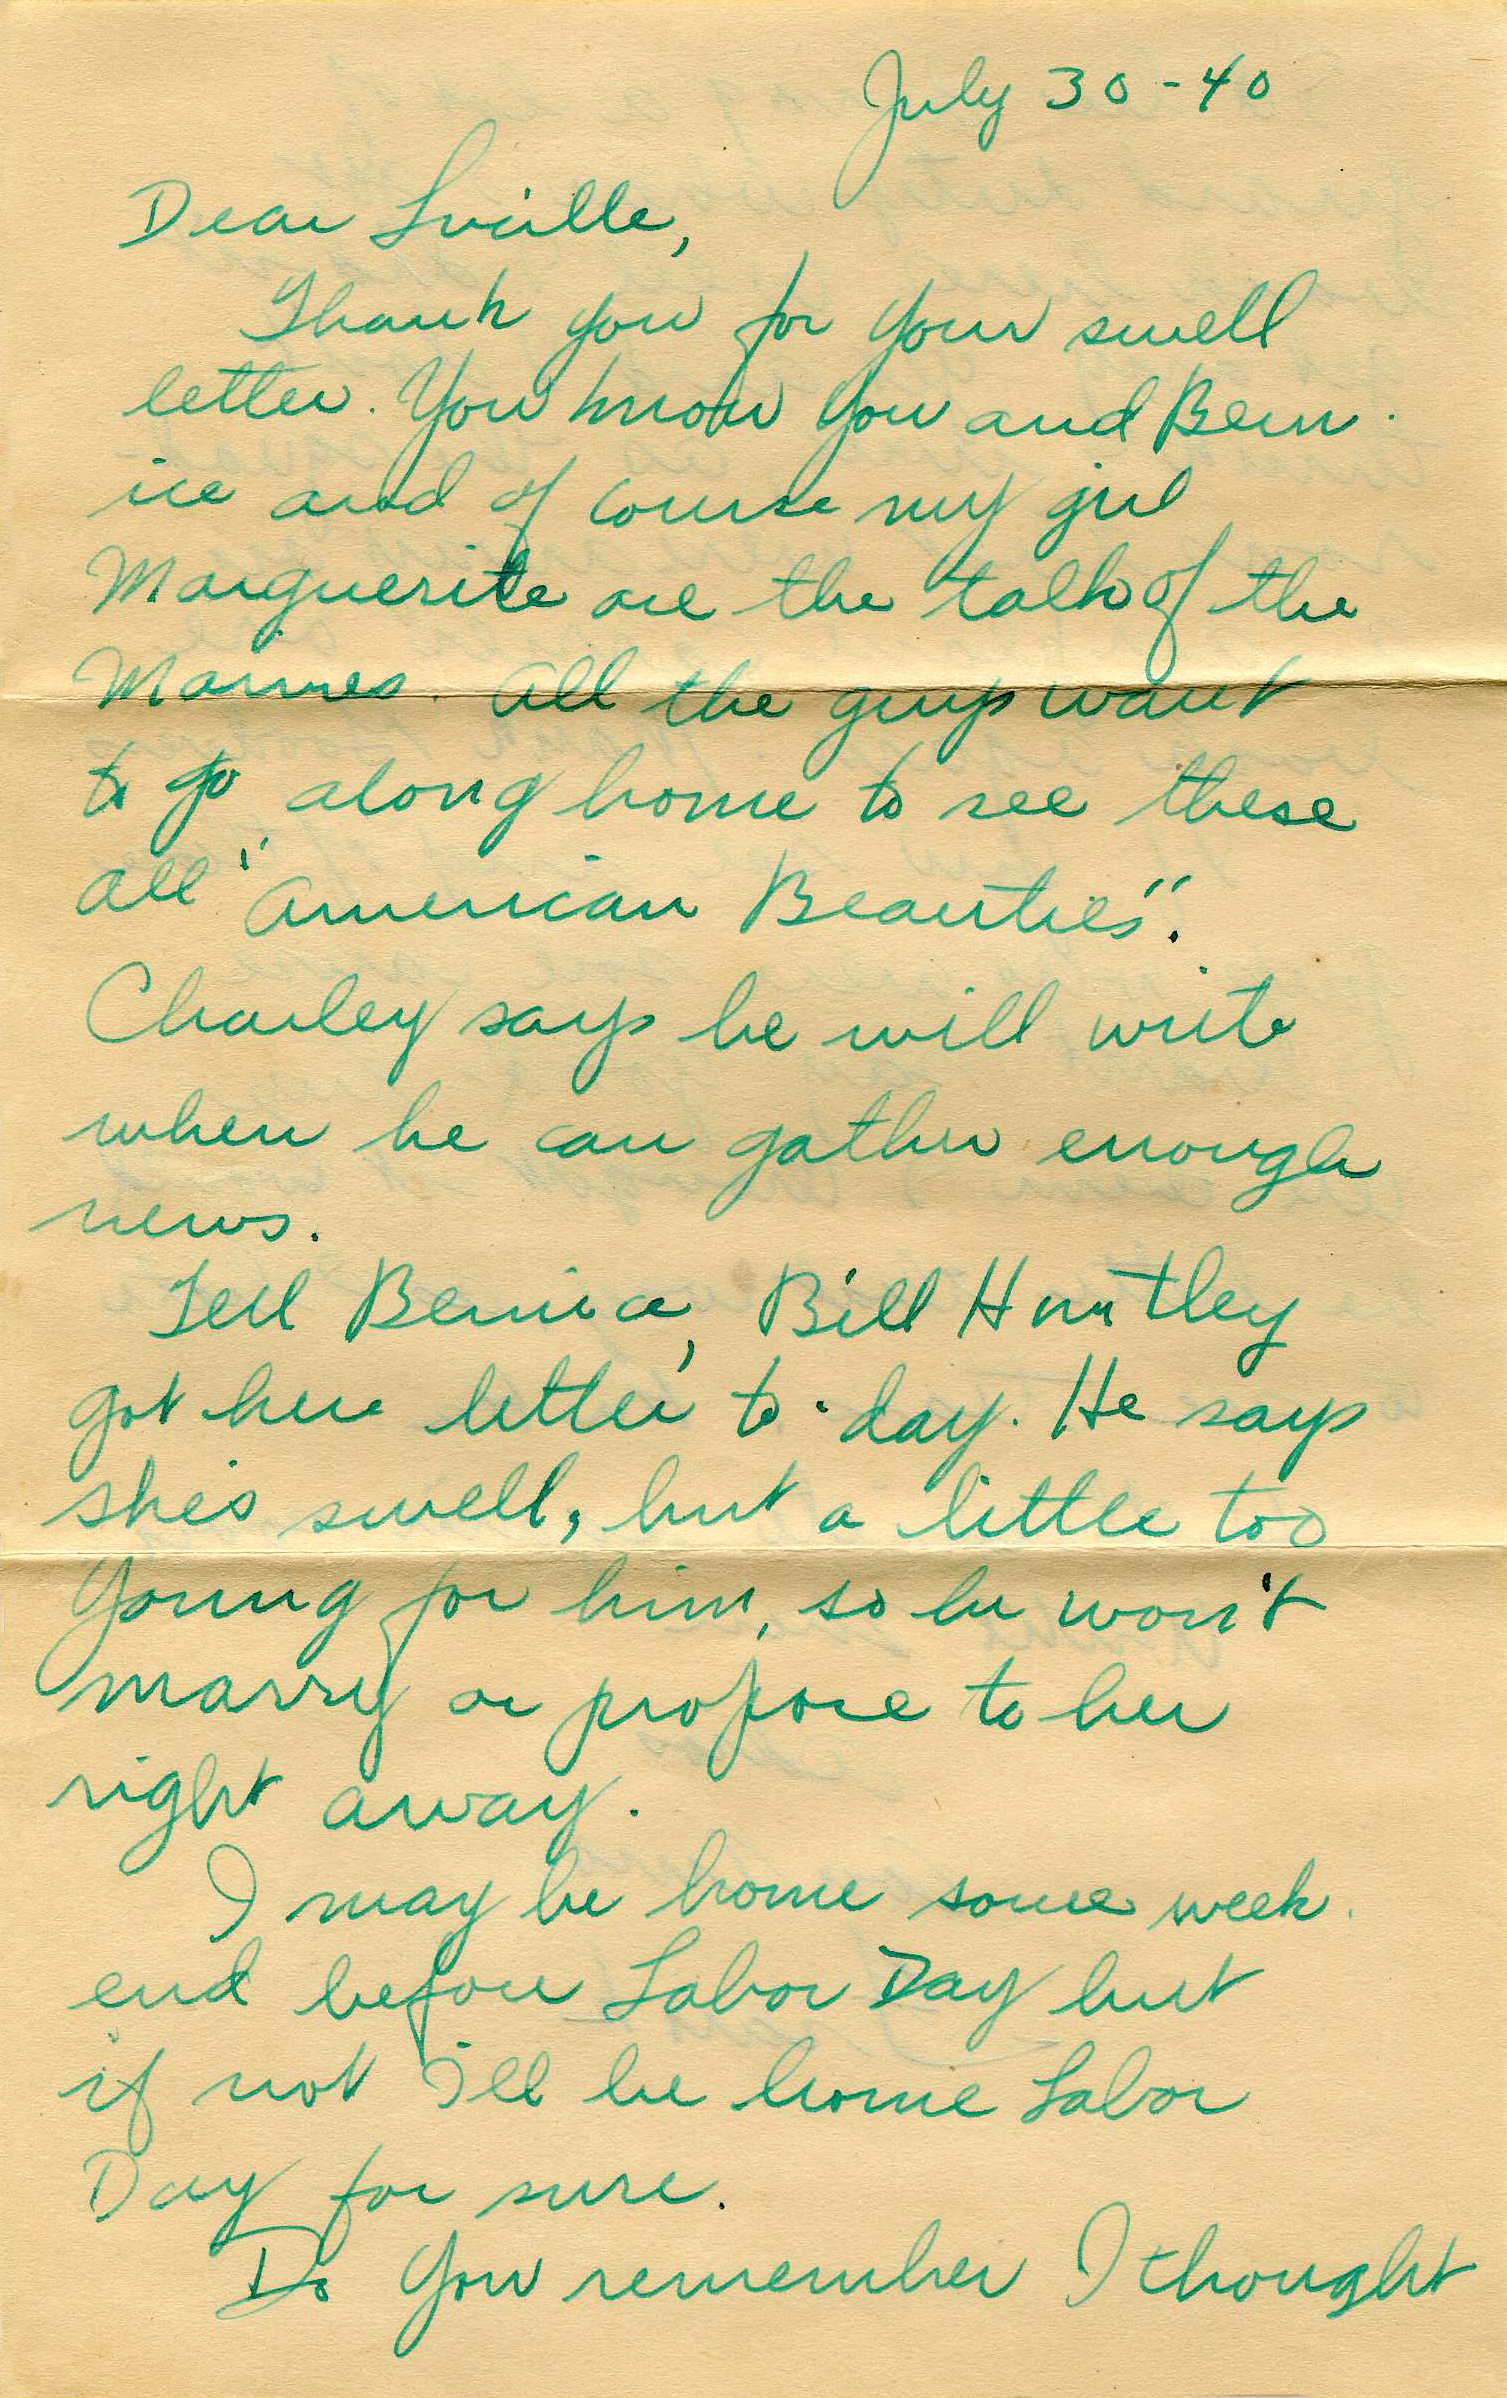 July 30-40
Dear Lucille,
Thank you for your swell
letter. You know you and Bern-
ice and of course my girl
Marguerite are the talk of the
Marines. All the guys want
to go along home to see these
all "American Beauties".
Charley says he will write
when he can gather enough
news.
Tell Bernice, Bill Huntley
got here letter to-day. He says
she's swell, but a little too
young for him, so he won't
marry or propose to her
right away.
I may be home some week-
end before Labor Day but
if not I'll be home Labor
Day for sure.
Do you remember I thought